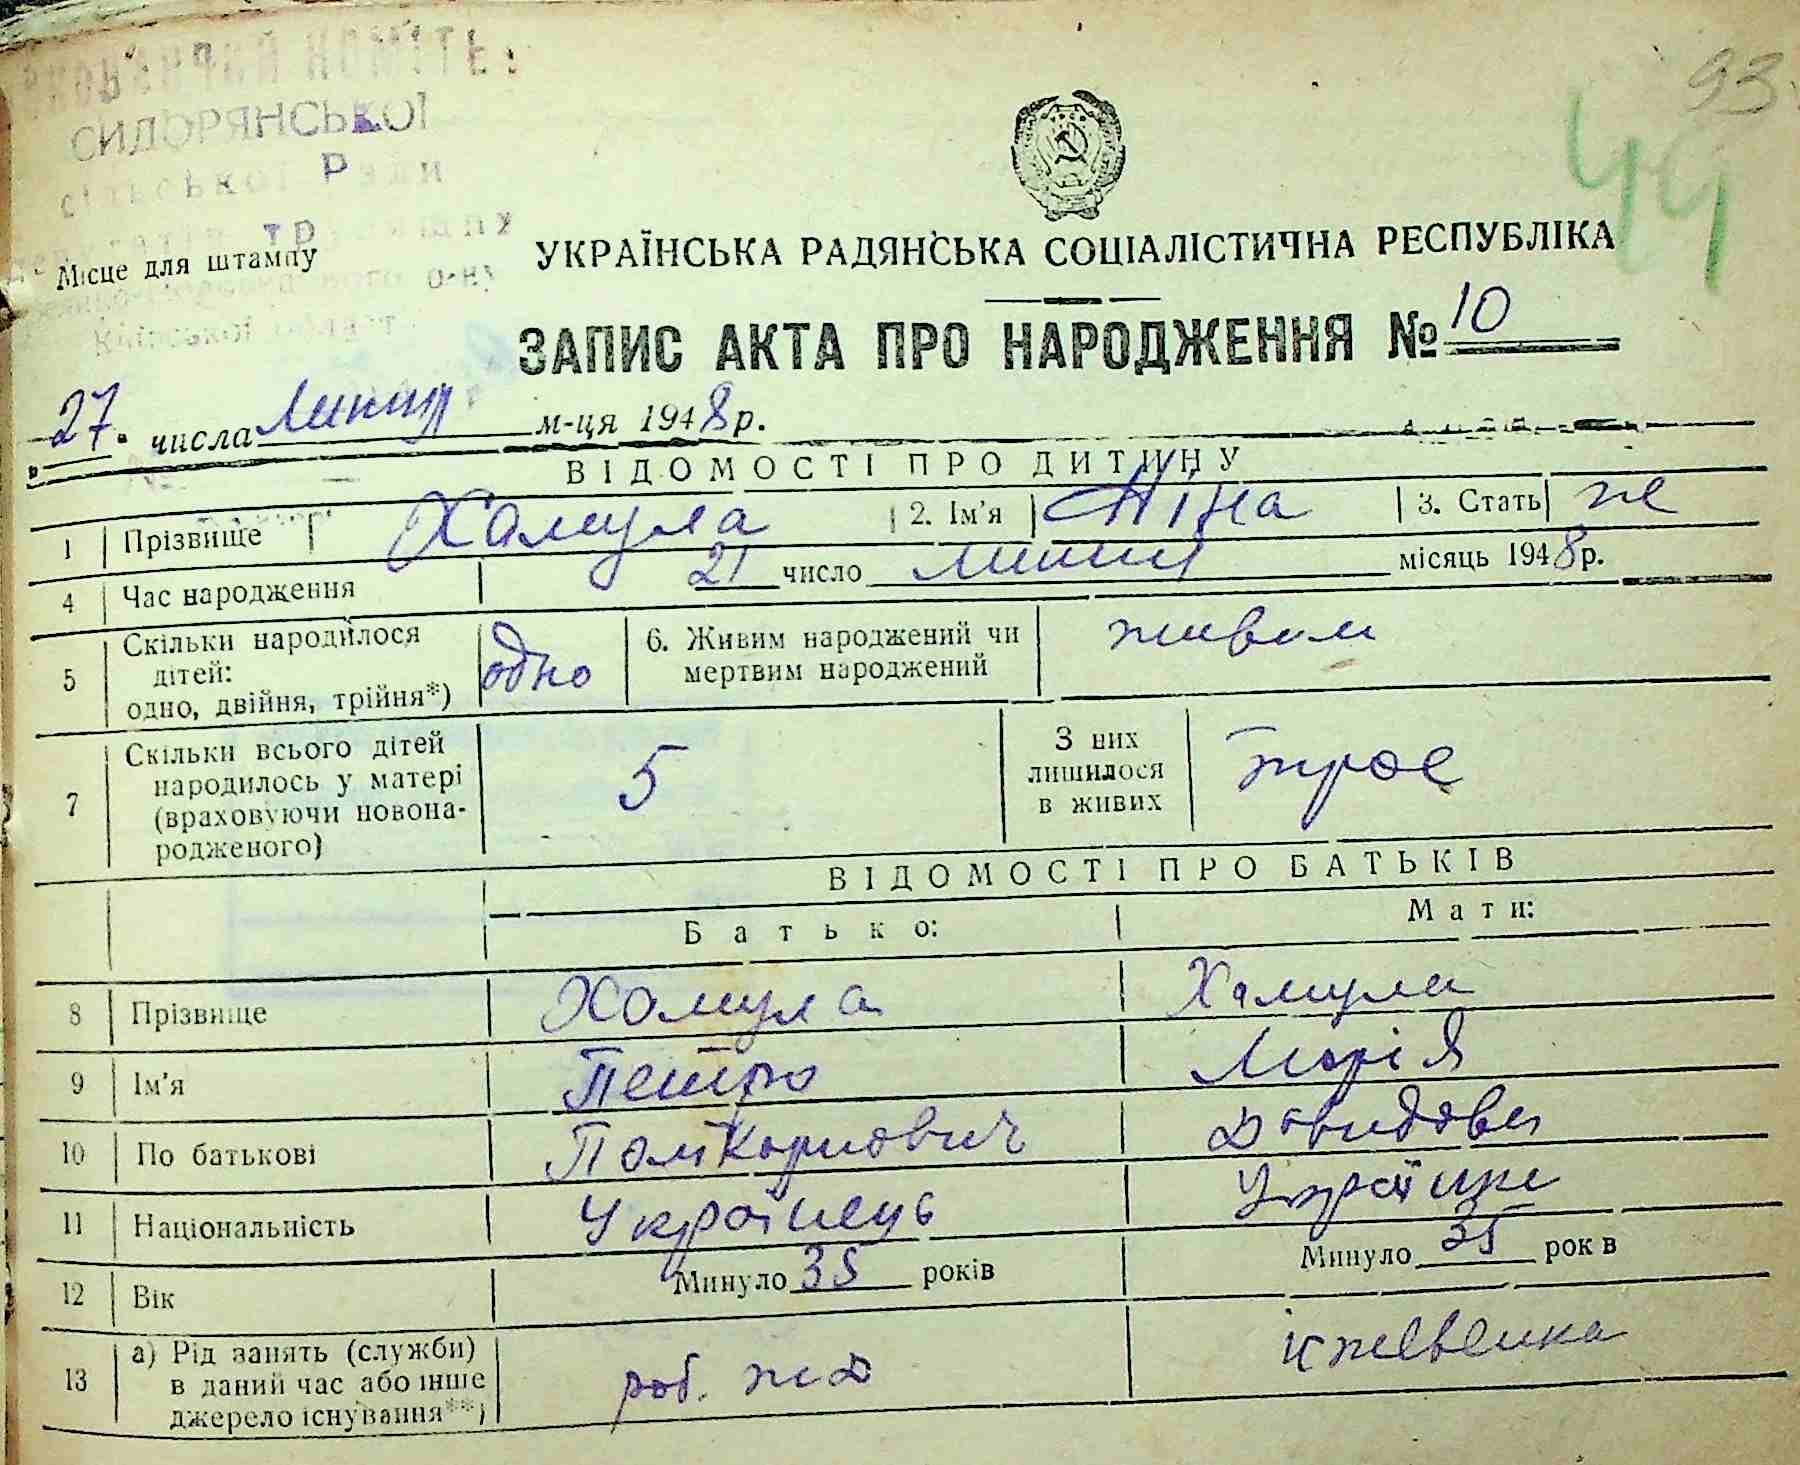 СИДОРЯНСЬКОЇ
сільської Ради
Місце для штампу
93
44
УКРАЇНСЬКА РАДЯНСЬКА СОЦІАЛІСТИЧНА РЕСПУБЛІКА
ЗАПИС АКТА ПРО НАРОДЖЕННЯ № 10
27 числа Липня м-ця 1948 р.
ВІДОМОСТІ ПРО ДИТИНУ
1 Прізвище Хамула 2. Ім'я Ніна 3. Стать же
4 Час народження 21 число липня місяць 1948 р.
5 Скільки народилося дітей: одно, двійня, трійня*) одно 6. Живим народжений чи мертвим народжений живим
7 Скільки всього дітей народилось у матері (враховуючи новонародженого) 5 З них лишилося в живих троє
ВІДОМОСТІ ПРО БАТЬКІВ
Батько: Мати:
8 Прізвище Хамула Хамула
9 Ім'я Петро Марія
10 По батькові Давидовна
11 Національність Українець Українка
12 Вік Минуло 35 років Минуло 35 рок в
13 а) Рід занять (служби) в даний час або інше джерело існування**) роб. жд